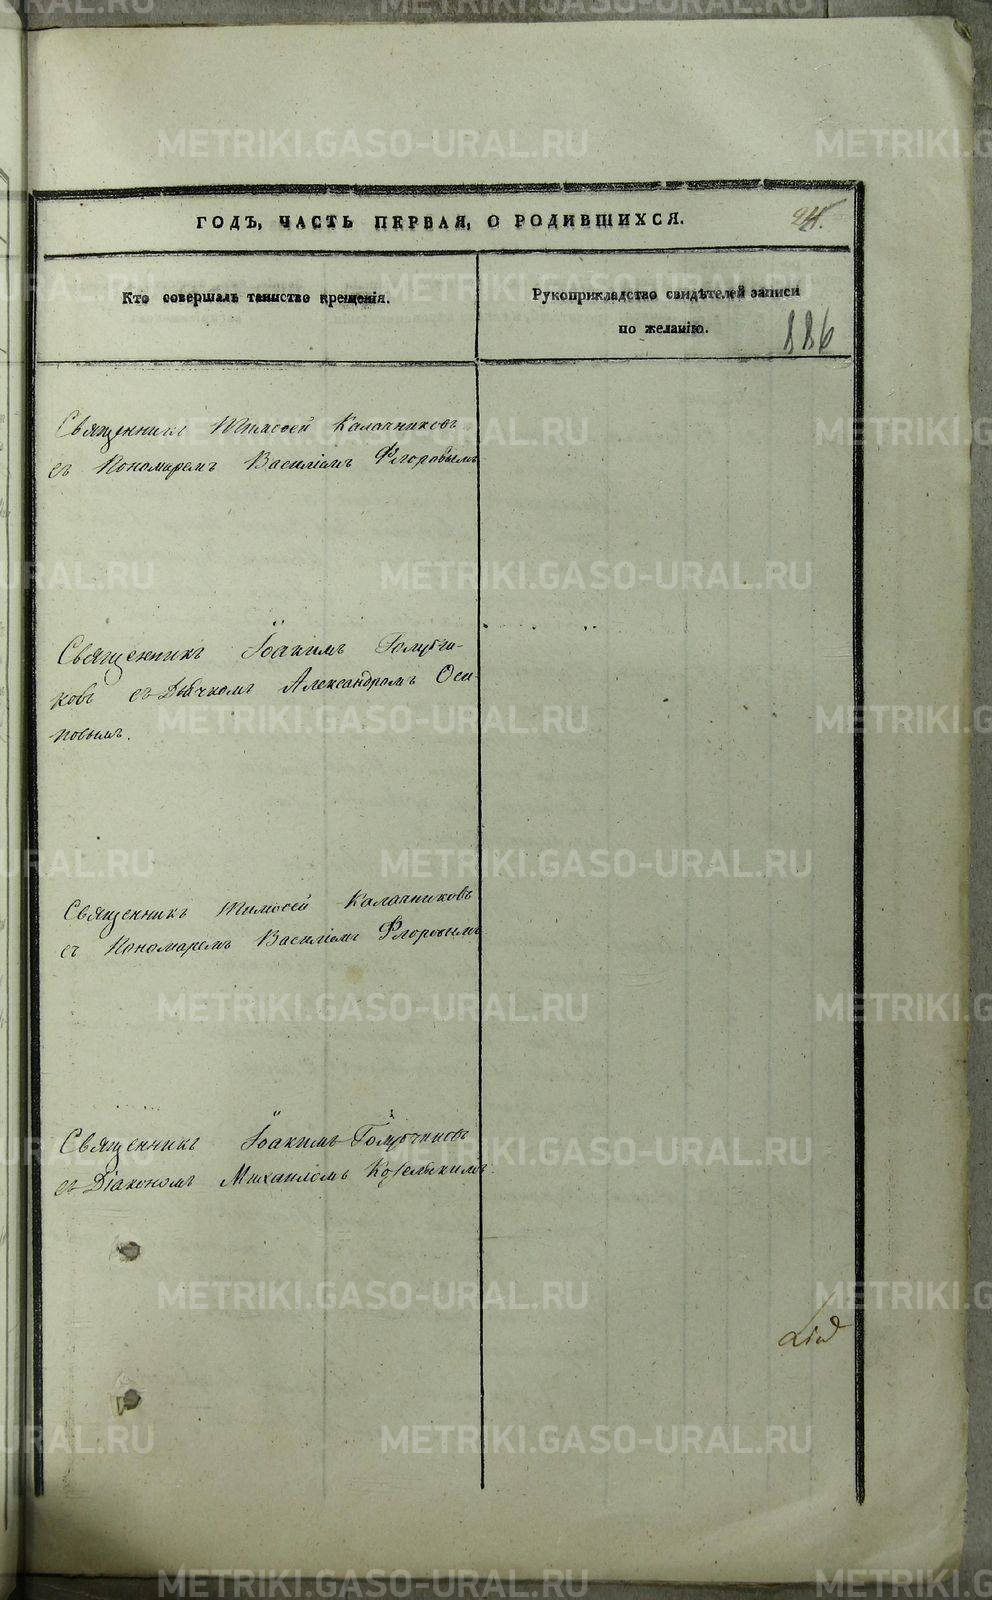 ГОДЪ, ЧАСТЬ ПЕРВАЯ, О РОДИВШИХСЯ.
Кто совершалъ таинство крещенія.
Рукоприкладство свидѣтелей записи
по желанію.
886
Священникъ Тимоѳей Калачниковъ
съ Пономаремъ Василіемъ Флоровымъ
Священникъ Іоакимъ
ковъ съ Дьячкомъ Александромъ Оси-
повымъ.
Священникъ Тимоѳей Калачниковъ
съ Пономаремъ Василіемъ Флоровымъ
Священникъ Іоакимъ
съ Діакономъ Михаиломъ
METRIKI.GASO-URAL.RU